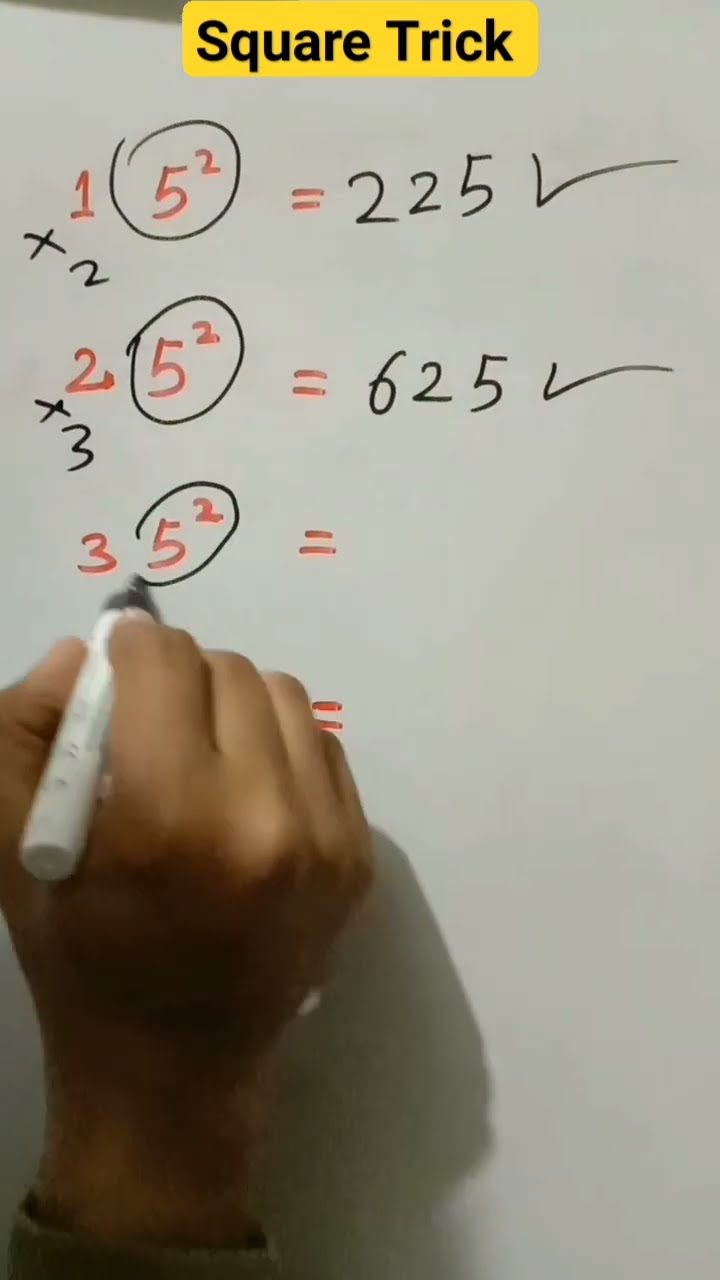 Square Trick
15² = 225 ✓
× 2
25² = 625 ✓
× 3
35² =
=